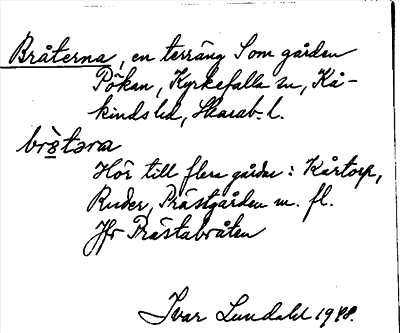 Bråterna, en terräng som gården
Pökan, Kyrkefalla sn, Kå-
kinds hd, Skarab. l.
bròtəra
Hör till flera gårdar: Kårtorp,
Ruder, Prästgården m. fl.
Jfr Prästabråten
Ivar Lundahl 1948.